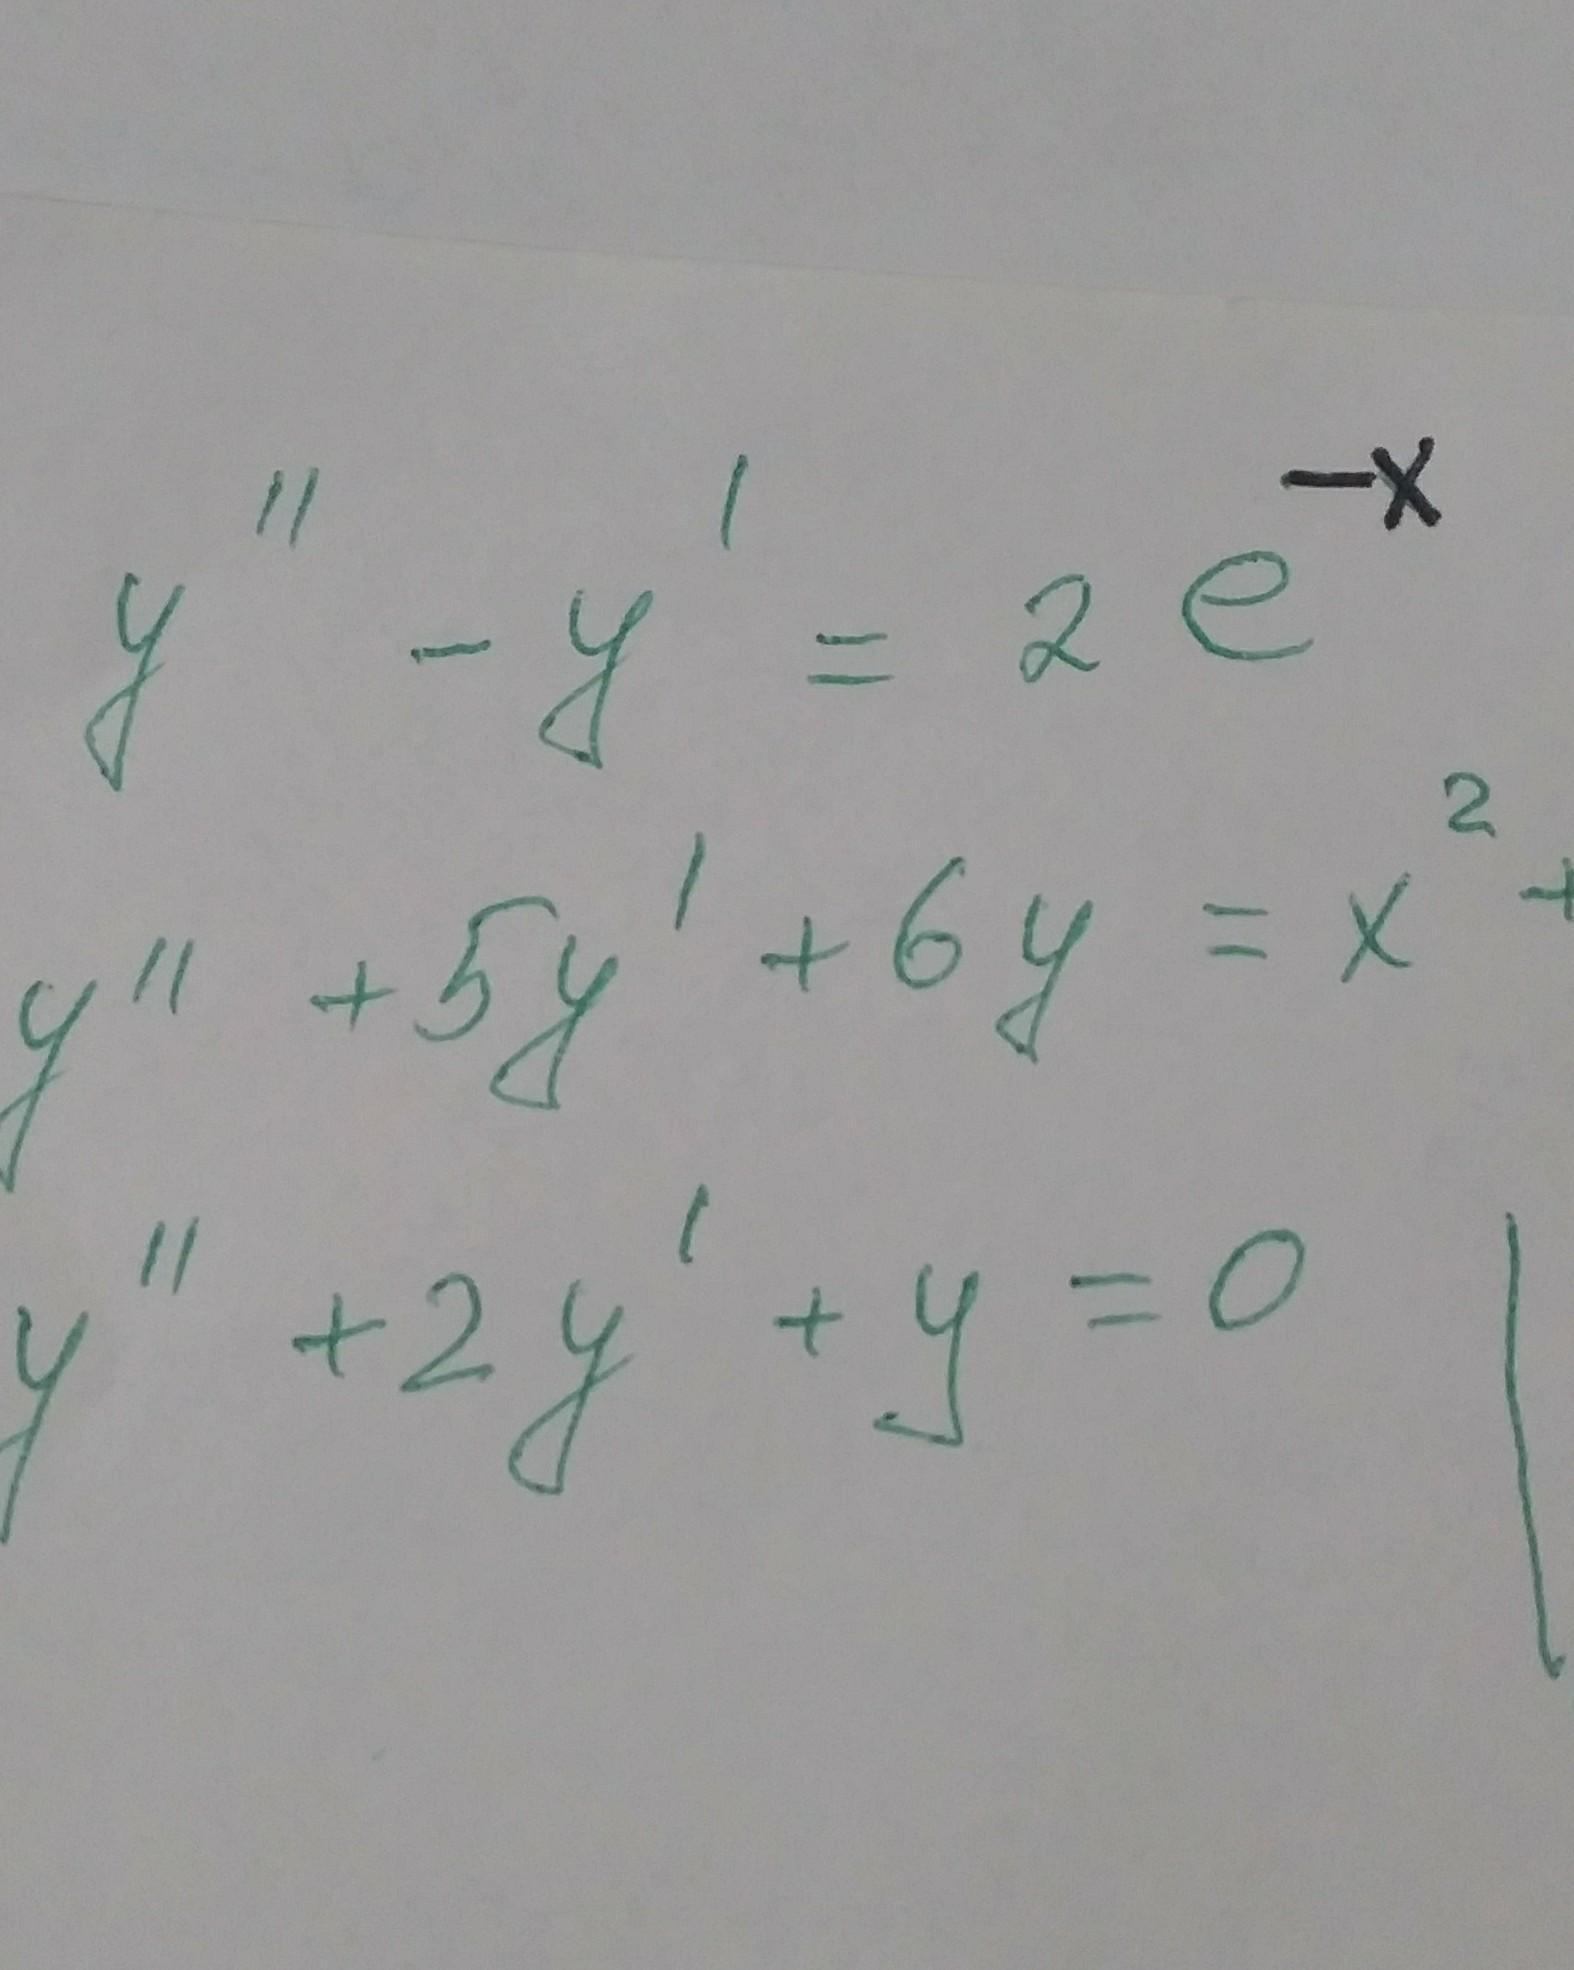 y'' - y' = 2e^{-x}
y'' + 5y' + 6y = x^2 +
y'' + 2y' + y = 0 |